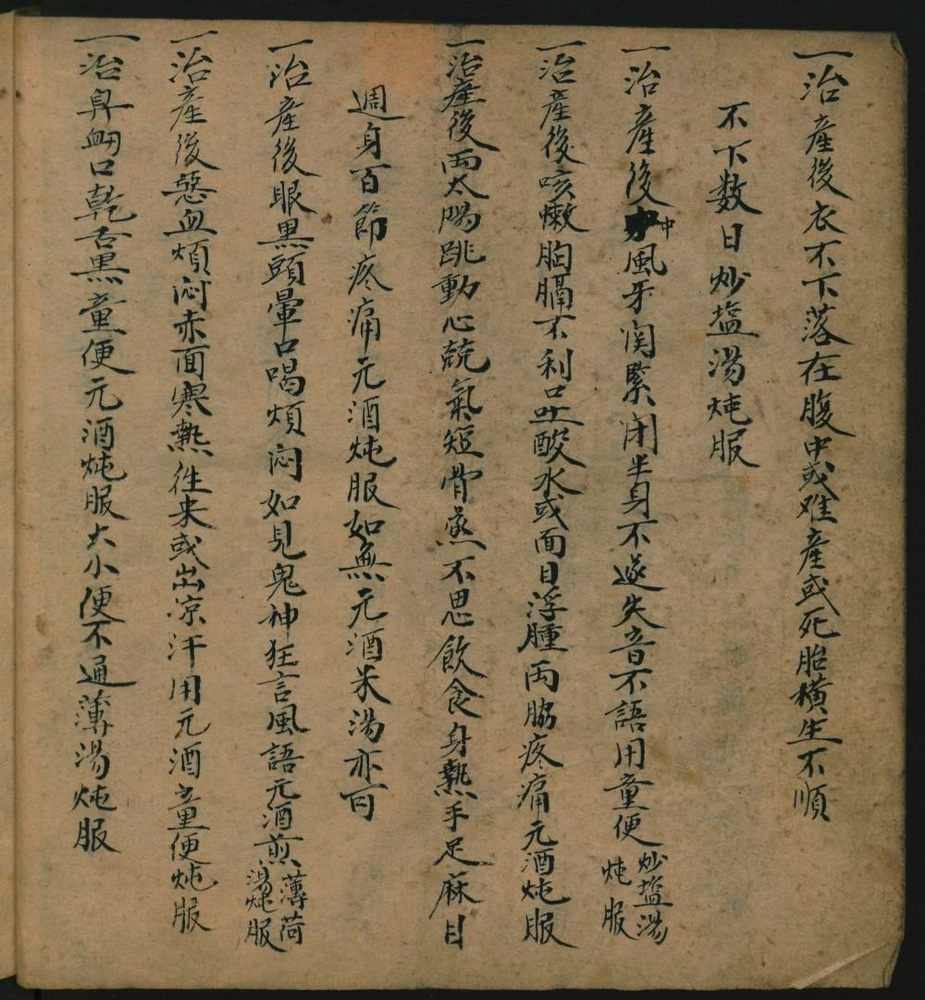 一治産後衣不下落在腹中或难產或死胎橫生不順
不下数日炒塩湯炖服
一治產後中風牙関緊闭半身不遂失音不語用童便炒塩湯炖服
一治產後咳嗽胸膈不利口吐酸水或面目浮腫両脇疼痛元酒炖服
一治產後両太陽跳動心兢氣短骨蒸不思飲食身熱手足麻目
週身百節疼痛元酒炖服如無元酒米湯亦可
一治產後眼黒頭暈口喝煩闷如見鬼神狂言風語元酒煎薄荷湯炖服
一治產後惡血煩闷赤面寒熱往来或出凉汗用元酒童便炖服
一治鼻衂口乾舌黒童便元酒炖服大小便不通薄湯炖服